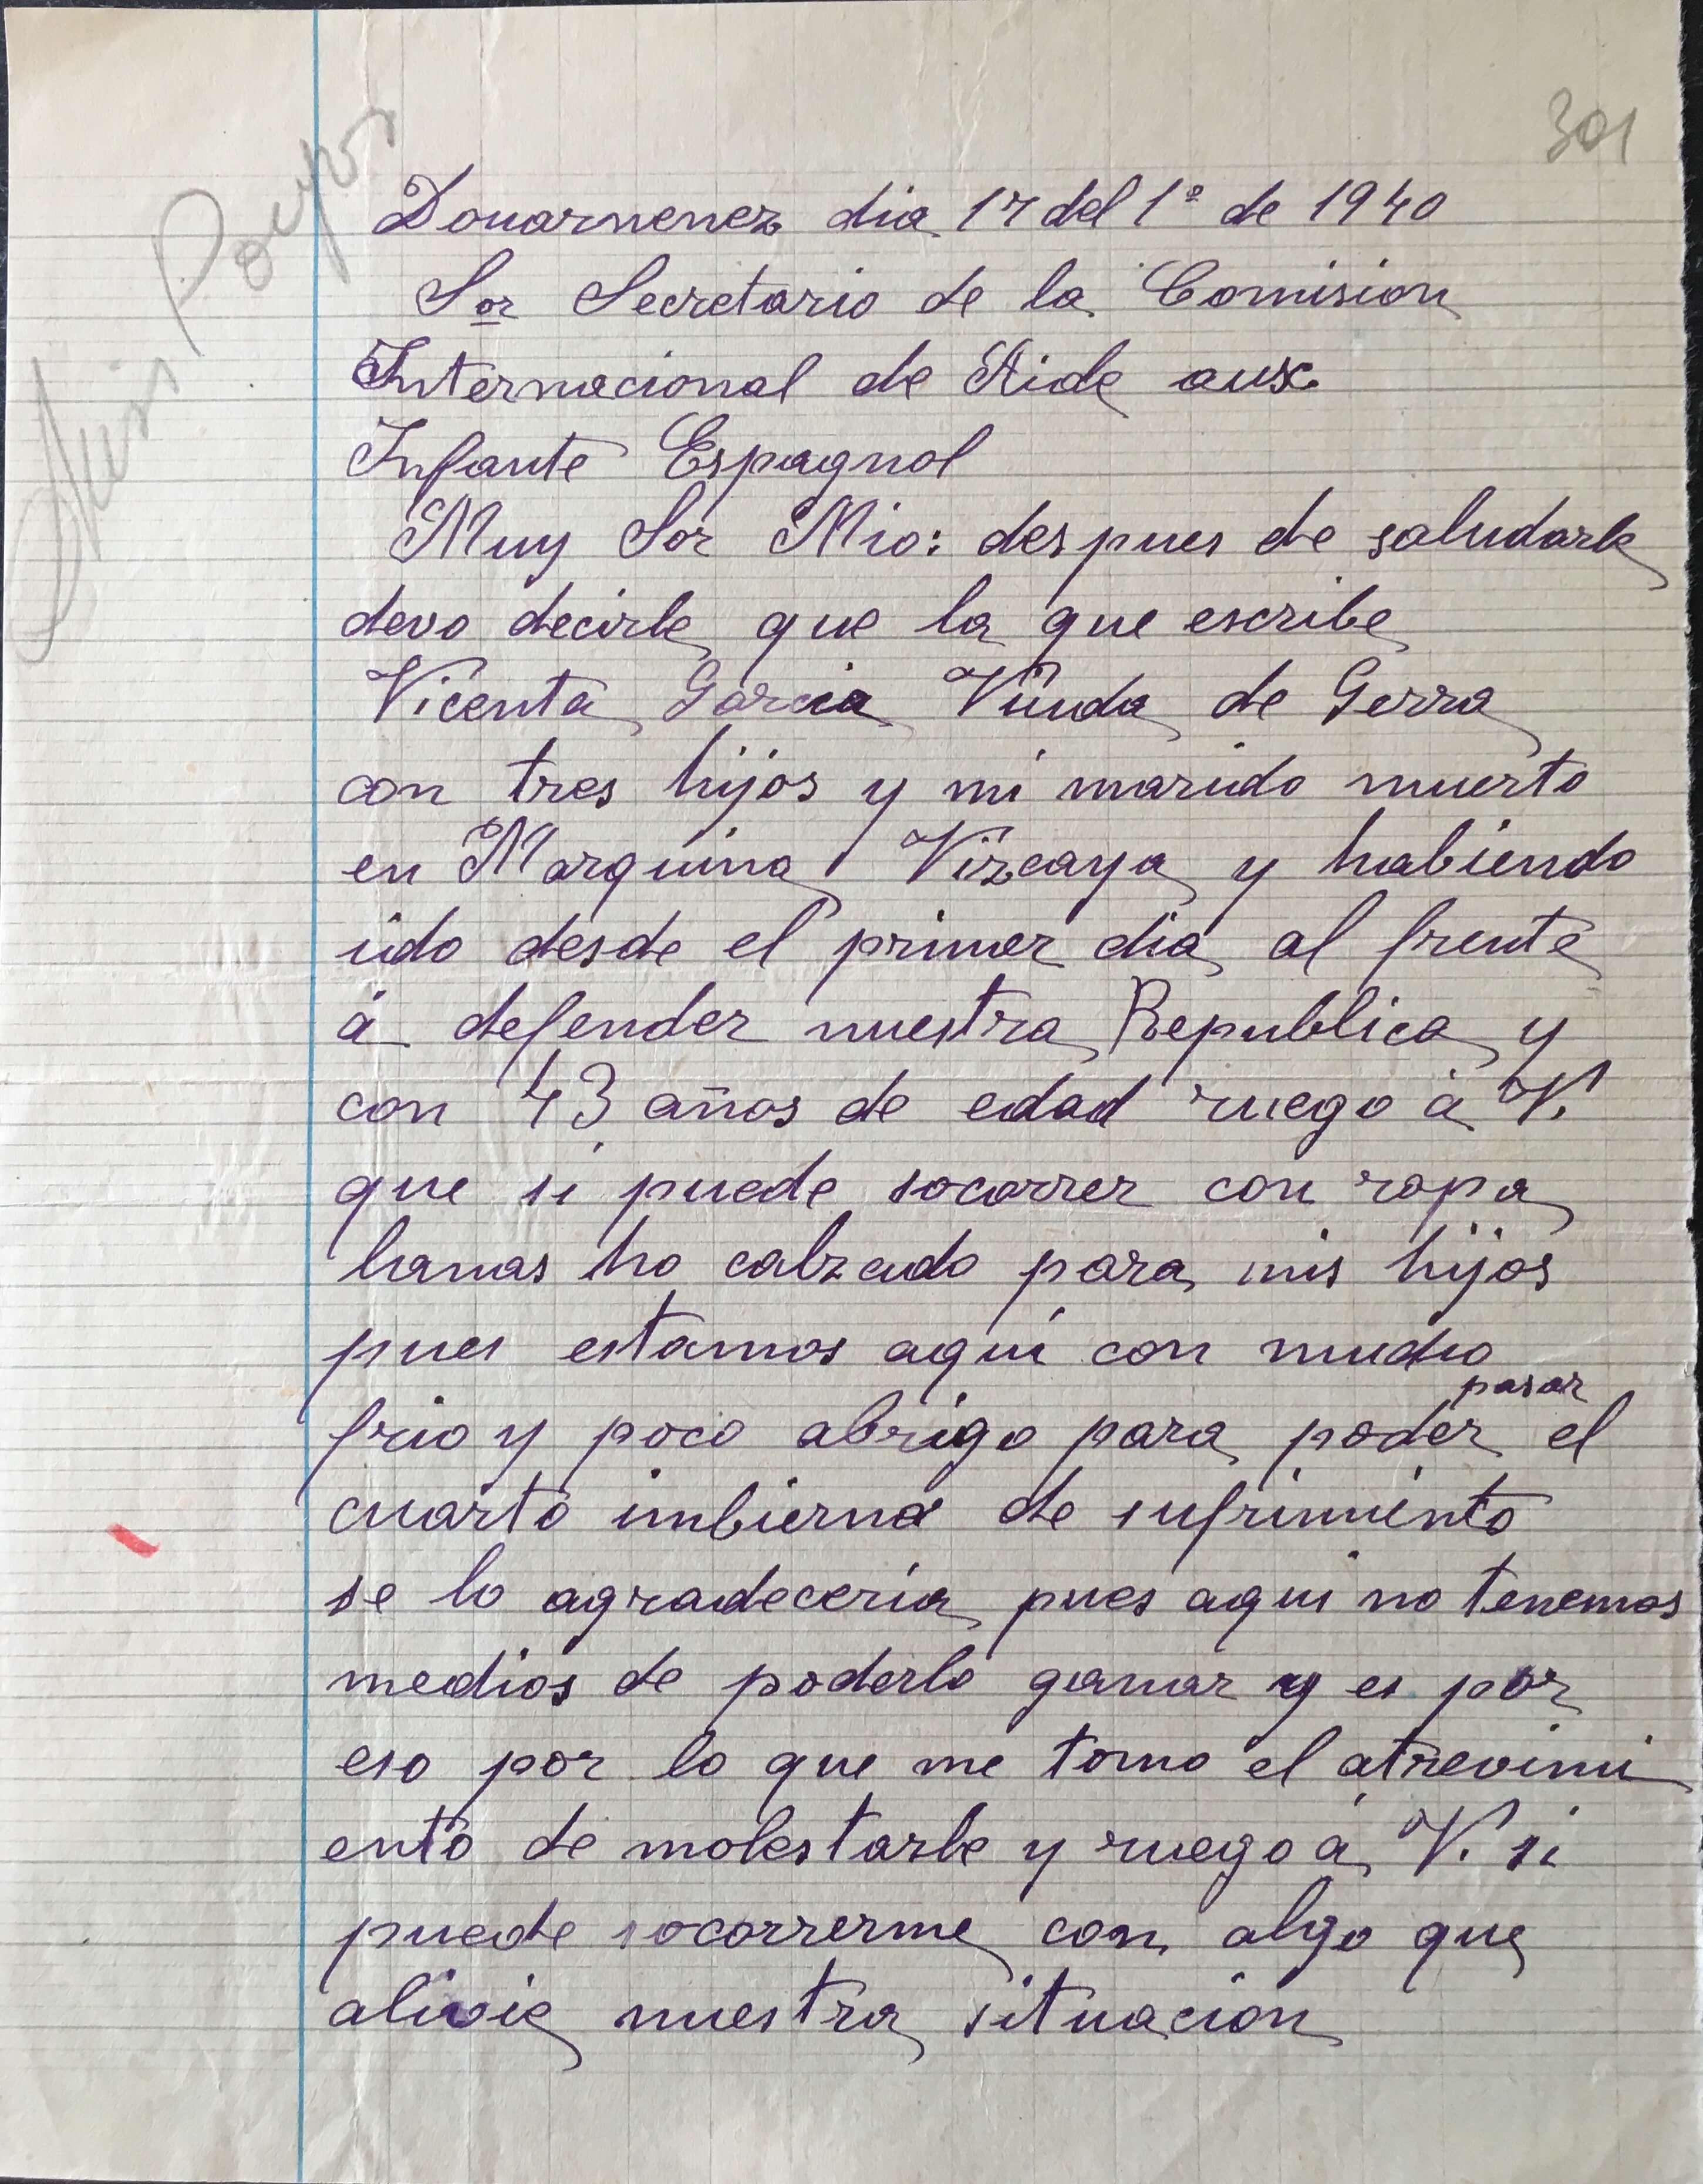 301
Douarnenez dia 17 del 1º de 1940
Sor Secretario de la Comision
Internacional de Aide aux
Infante Espagnol
Muy Sor Mio: despues de saludarle
devo decirle que la que escribe
Vicenta Garcia Viuda de Gerra
con tres hijos y mi marido muerto
en Marquina Vizcaya y habiendo
ido desde el primer dia al frente
á defender nuestra Republica y
con 43 años de edad ruego á V.
que si puede socorrer con ropa
hanas ho calzado para mis hijos
pues estamos aqui con mucho
pasar
frio y poco abrigo para poder el
cuarto imbierno de sufrimiento
se lo agradeceria pues aqui no tenemos
medios de poderlo ganar y es por
eso por lo que me tomo el atrevimi
ento de molestarle y ruego á V. si
puede socorrerme con algo que
alivie nuestra situacion